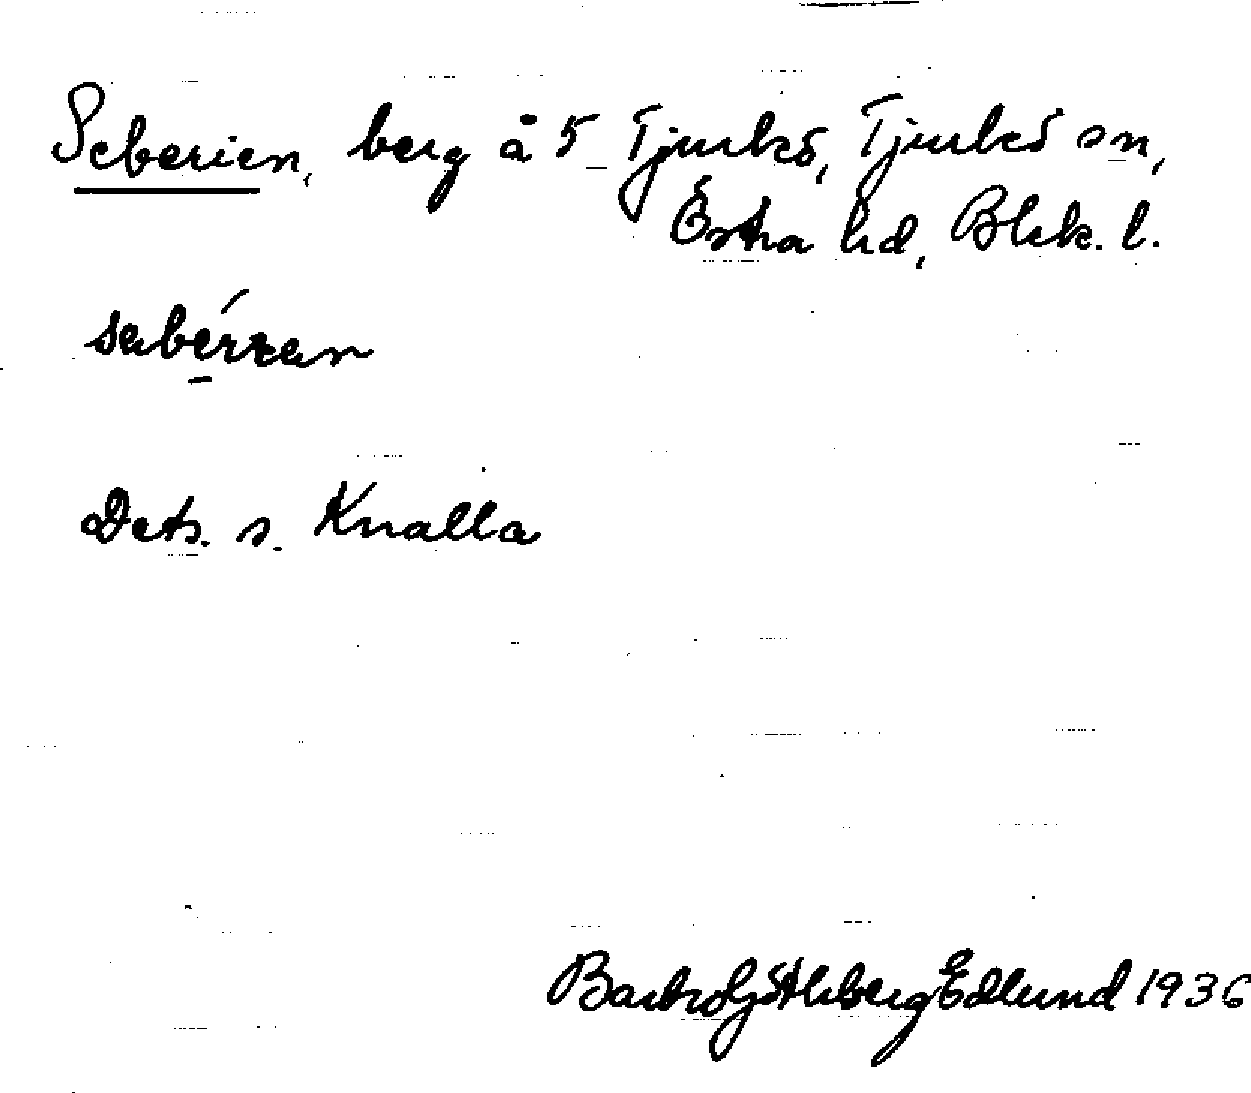 Seberien, berg å 5 Tjurkö, Tjurkö sn,
Östra hd, Blek. l.
sebérran
Dets. s. Knalla
Barbro Ståhlberg Edlund 1936